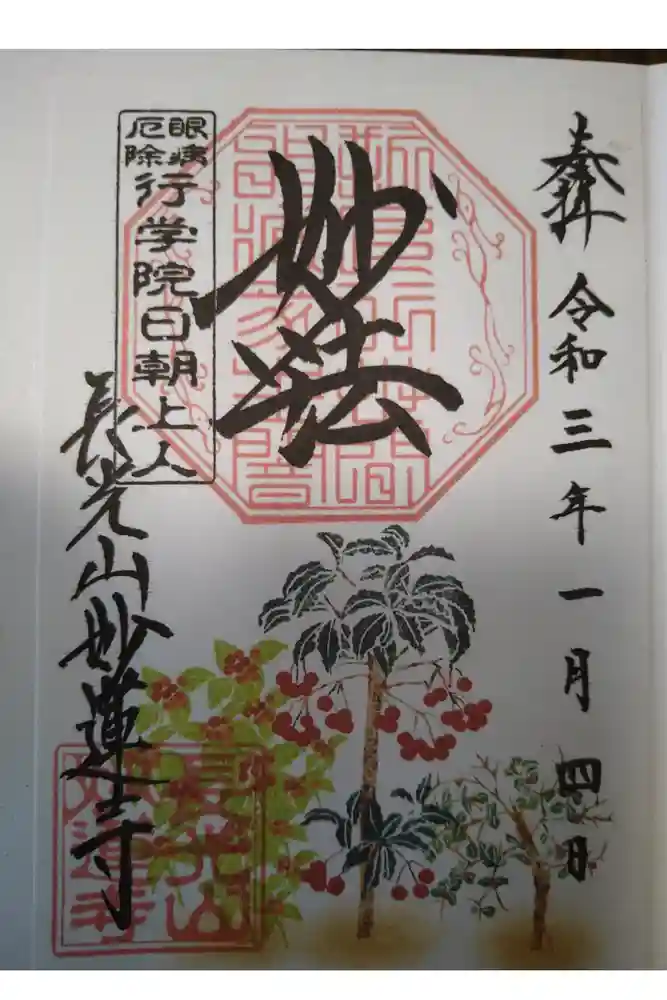 奉拝 令和三年一月四日
妙法
眼病
厄除
行学院日朝上人
長光山妙蓮寺
長光山
妙蓮寺